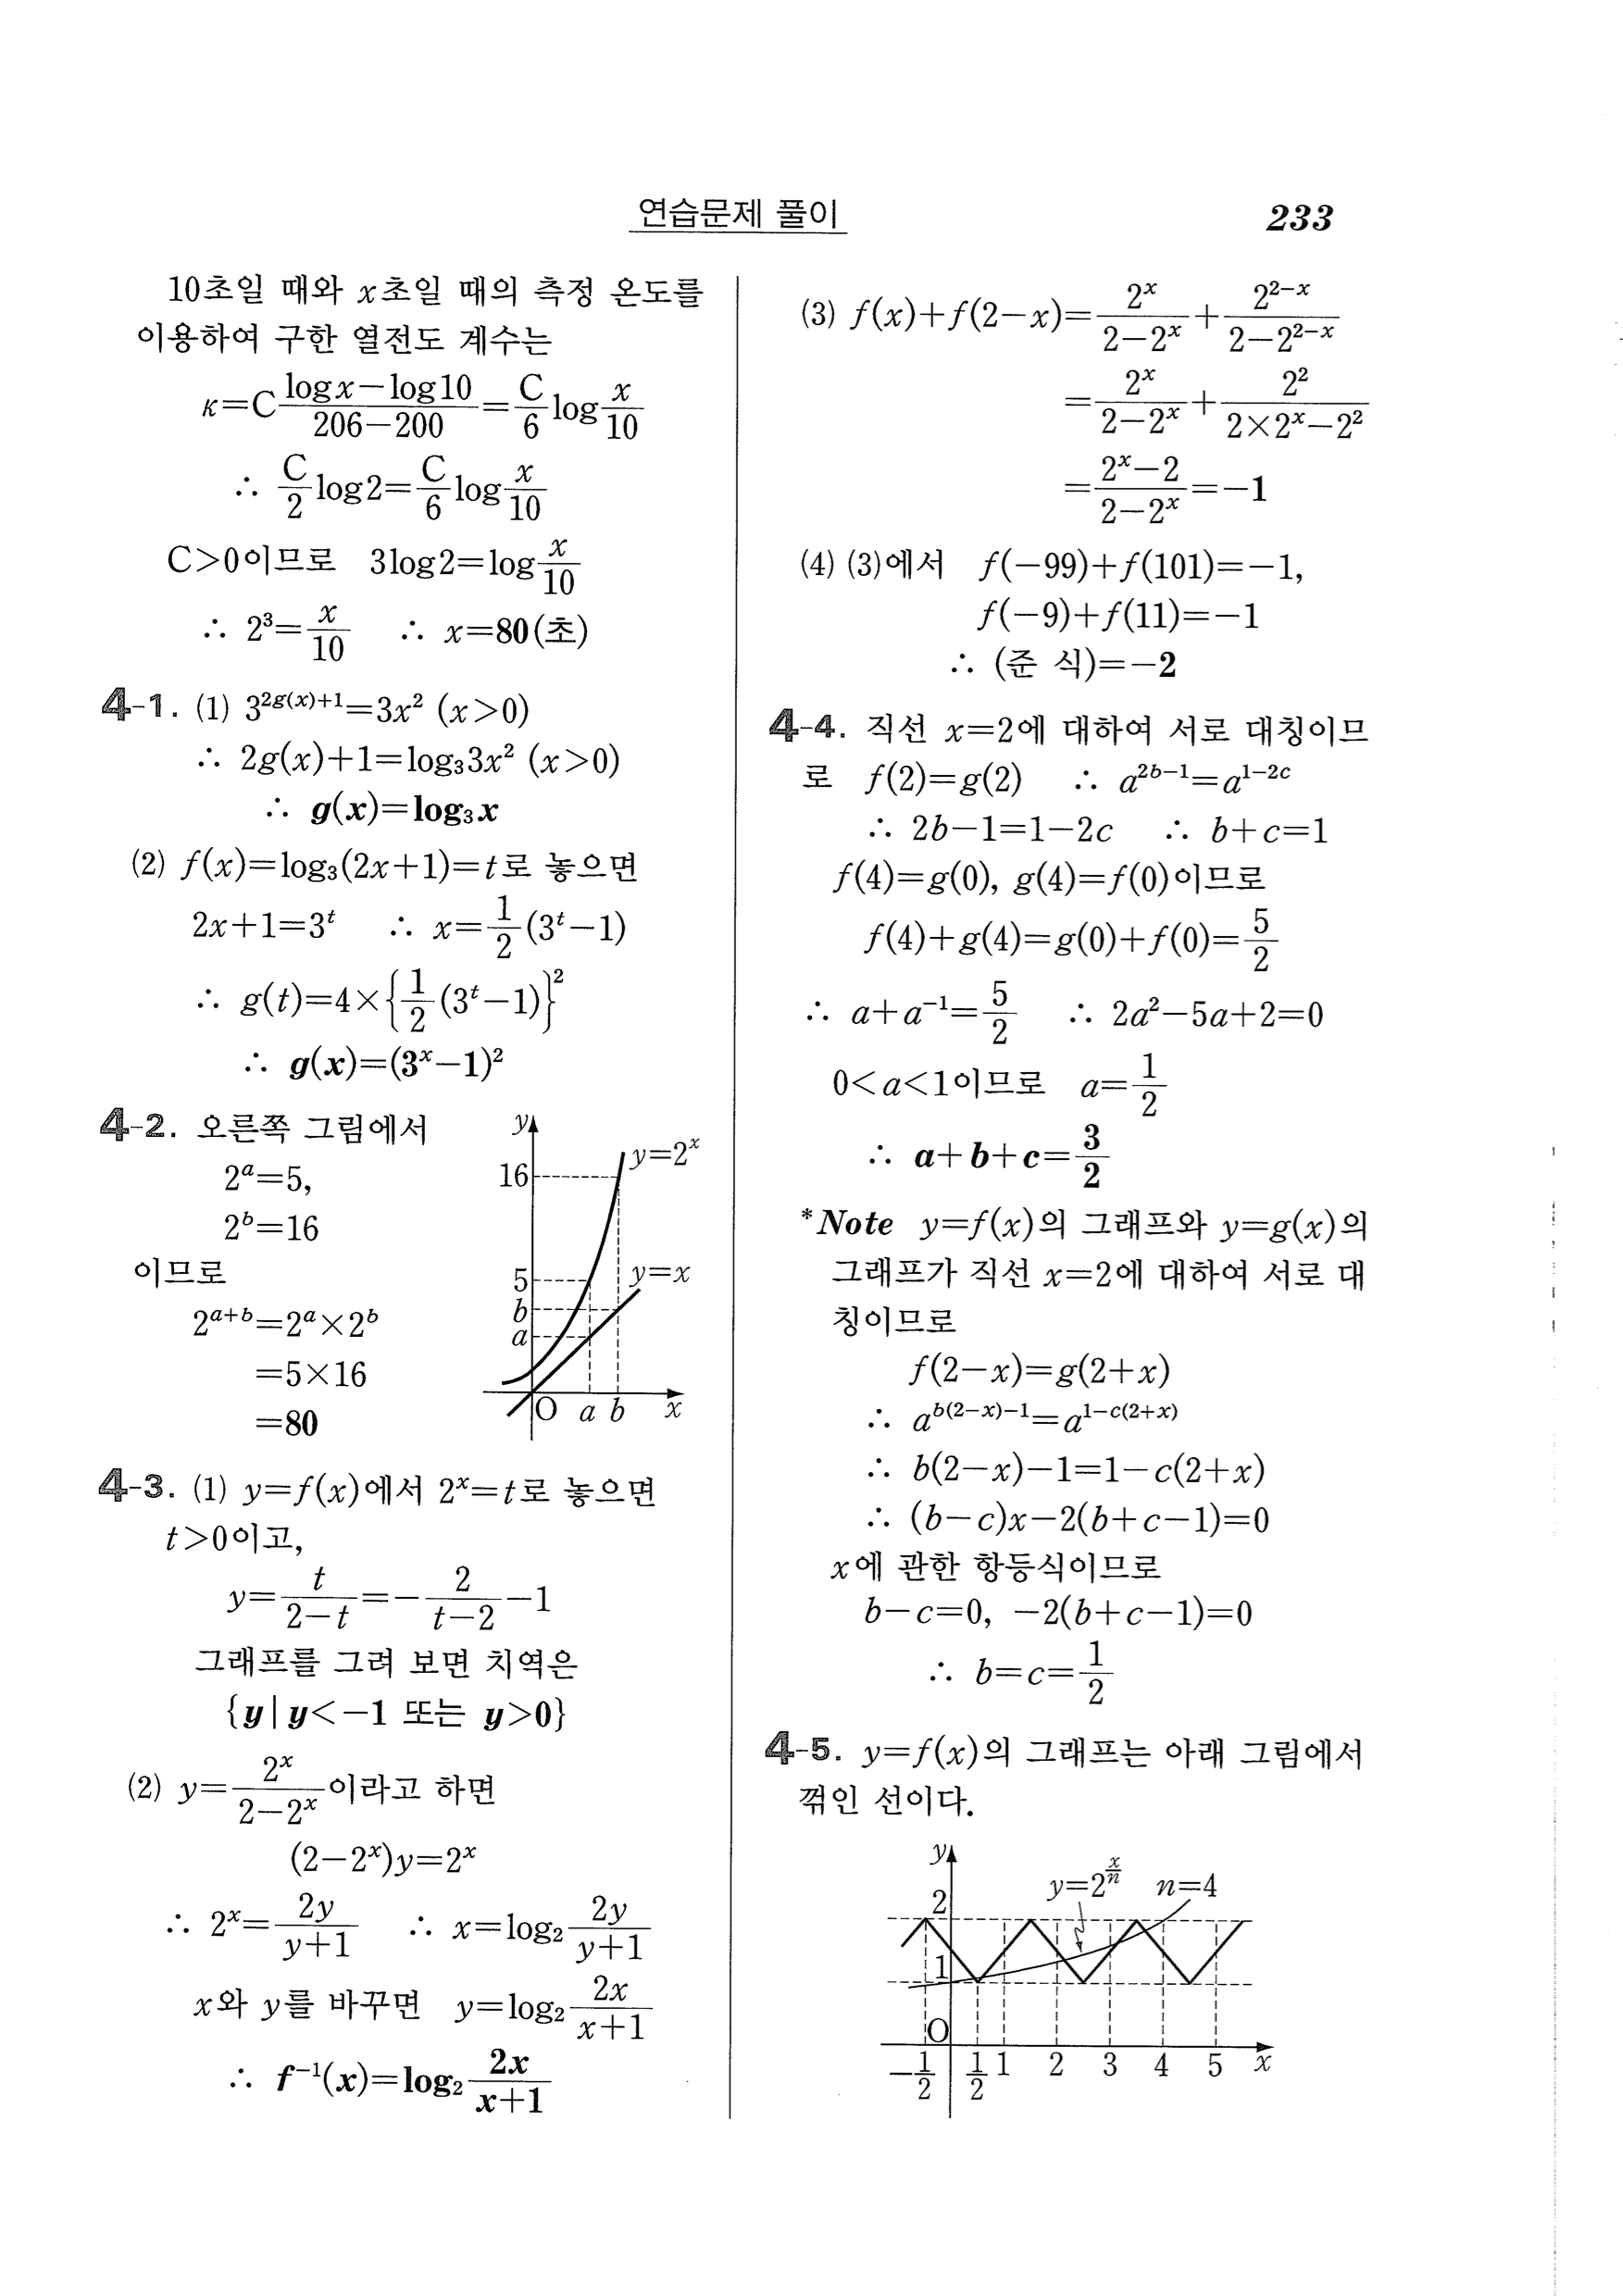 연습문제 풀이 233
10초일 때와 x초일 때의 측정 온도를
이용하여 구한 열전도 계수는
κ=C\frac{logx-log10}{206-200}=\frac{C}{6}log\frac{x}{10}
∴ \frac{C}{2}log2=\frac{C}{6}log\frac{x}{10}
C>0이므로 3log2=log\frac{x}{10}
∴ 2³=\frac{x}{10} ∴ x=80(초)
4-1. (1) 3^{2g(x)+1}=3x² (x>0)
∴ 2g(x)+1=log₃3x² (x>0)
∴ g(x)=log₃x
(2) f(x)=log₃(2x+1)=t로 놓으면
2x+1=3^t ∴ x=\frac{1}{2}(3^t-1)
∴ g(t)=4×{\frac{1}{2}(3^t-1)}²
∴ g(x)=(3^x-1)²
4-2. 오른쪽 그림에서
2^a=5,
2^b=16
이므로
2^{a+b}=2^a×2^b
=5×16
=80
y
y=2^x
16
5
y=x
b
a
O a b x
4-3. (1) y=f(x)에서 2^x=t로 놓으면
t>0이고,
y=\frac{t}{2-t}=-\frac{2}{t-2}-1
그래프를 그려 보면 치역은
{y|y<-1 또는 y>0}
(2) y=\frac{2^x}{2-2^x}이라고 하면
(2-2^x)y=2^x
∴ 2^x=\frac{2y}{y+1} ∴ x=log₂\frac{2y}{y+1}
x와 y를 바꾸면 y=log₂\frac{2x}{x+1}
∴ f^{-1}(x)=log₂\frac{2x}{x+1}
(3) f(x)+f(2-x)=\frac{2^x}{2-2^x}+\frac{2^{2-x}}{2-2^{2-x}}
=\frac{2^x}{2-2^x}+\frac{2²}{2×2^x-2²}
=\frac{2^x-2}{2-2^x}=-1
(4) (3)에서 f(-99)+f(101)=-1,
f(-9)+f(11)=-1
∴ (준 식)=-2
4-4. 직선 x=2에 대하여 서로 대칭이므
로 f(2)=g(2) ∴ a^{2b-1}=a^{1-2c}
∴ 2b-1=1-2c ∴ b+c=1
f(4)=g(0), g(4)=f(0)이므로
f(4)+g(4)=g(0)+f(0)=\frac{5}{2}
∴ a+a^{-1}=\frac{5}{2} ∴ 2a²-5a+2=0
0<a<1이므로 a=\frac{1}{2}
∴ a+b+c=\frac{3}{2}
*Note y=f(x)의 그래프와 y=g(x)의
그래프가 직선 x=2에 대하여 서로 대
칭이므로
f(2-x)=g(2+x)
∴ a^{b(2-x)-1}=a^{1-c(2+x)}
∴ b(2-x)-1=1-c(2+x)
∴ (b-c)x-2(b+c-1)=0
x에 관한 항등식이므로
b-c=0, -2(b+c-1)=0
∴ b=c=\frac{1}{2}
4-5. y=f(x)의 그래프는 아래 그림에서
꺾인 선이다.
y
y=2^{\frac{x}{n}} n=4
2
1
O
-\frac{1}{2} \frac{1}{2} 1 2 3 4 5 x